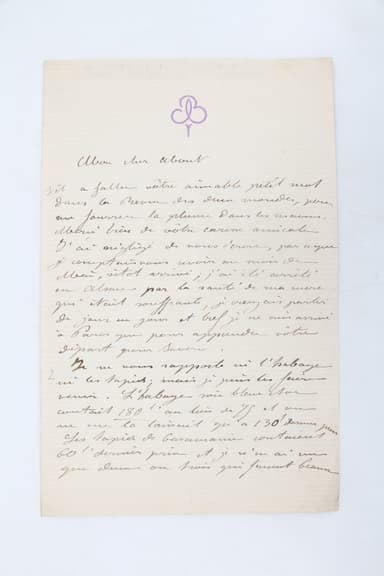 Mon cher About
il a fallu vôtre aimable petit mot
dans la Revue des deux mondes, pour
me fourrer la plume dans les mains.
Merci bien de vôtre caresse amicale
J'ai négligé de vous écrire, parce que
je comptais vous revoir au mois de
Mai, sitot arrivé; j'ai été arrêté
en Alsace par la santé de ma mère
qui était souffrante, je croyais partir
de jour en jour et bref je ne suis arrivé
à Paris que pour apprendre vôtre
départ pour Saverne.
Je ne vous rapporte ni l'habaye
ni les tapis; mais je puis les faire
venir. L'habaye soie bleu et or
coutait 180f au lieu de 75 et on
ne me la laissait qu'à 130f dernier prix
Les tapis de Caramanie coutaient
60f dernier prix et je n'en ai vu
que deux ou trois qui fussent beaux